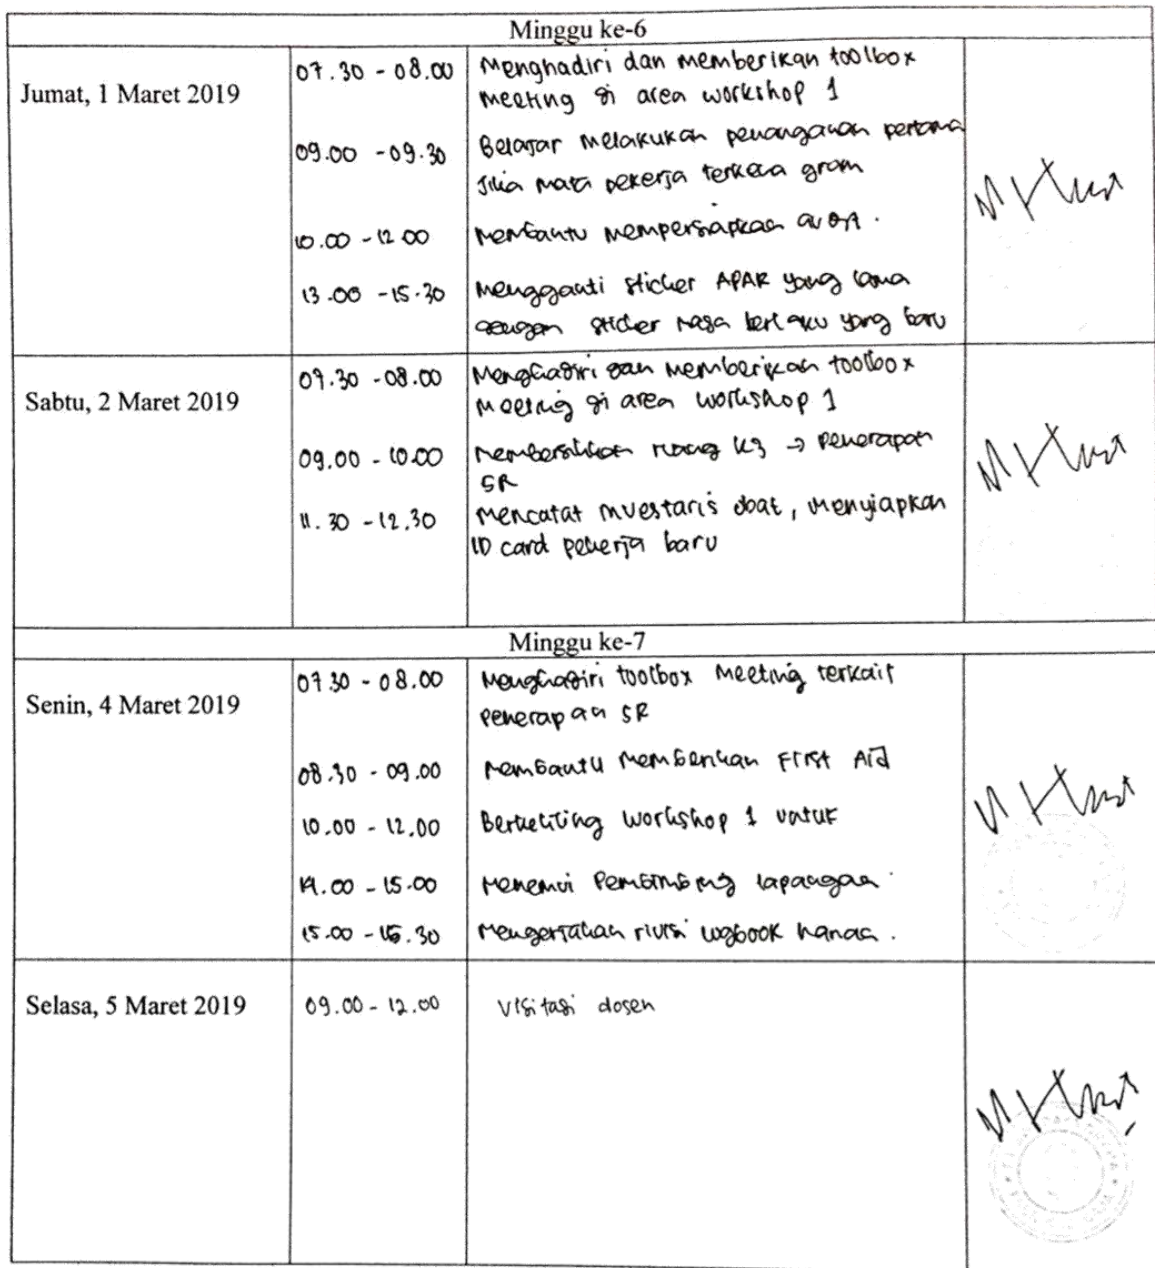 Minggu ke-6
Jumat, 1 Maret 2019
07.30 - 08.00
Menghadiri dan memberikan toolbox
meeting di area workshop 1
09.00 - 09.30
Belajar melakukan penanganan pertama
jika mata pekerja terkena gram
10.00 - 12.00
Membantu mempersiapkan
13.00 - 15.30
Mengganti sticker APAR yang lama
dengan sticker masa berlaku yang baru
Sabtu, 2 Maret 2019
07.30 - 08.00
Menghadiri dan memberikan toolbox
meeting di area workshop 1
09.00 - 10.00
Membersihkan ruang K3 → penerapan
5R
11.30 - 12.30
Mencatat inventaris obat, menyiapkan
ID card pekerja baru
Minggu ke-7
Senin, 4 Maret 2019
07.30 - 08.00
Menghadiri toolbox meeting terkait
penerapan 5R
08.30 - 09.00
Membantu memberikan First Aid
10.00 - 12.00
Berkeliling workshop 1 untuk
14.00 - 15.00
Menemui Pembimbing lapangan
15.00 - 15.30
Mengerjakan logbook harian.
Selasa, 5 Maret 2019
09.00 - 12.00
Visitasi dosen